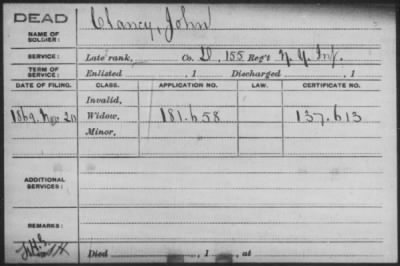 DEAD
NAME OF SOLDIER: Clancy, John
SERVICE: Late rank, Co. D, 155 Reg't N. Y. Inf.
TERM OF SERVICE: Enlisted , 1 Discharged , 1
DATE OF FILING. CLASS. APPLICATION NO. LAW. CERTIFICATE NO.
Invalid,
1869. Nov. 20 Widow, 181.658 137.613
Minor,
ADDITIONAL SERVICES:
REMARKS:
Died , 1 , at